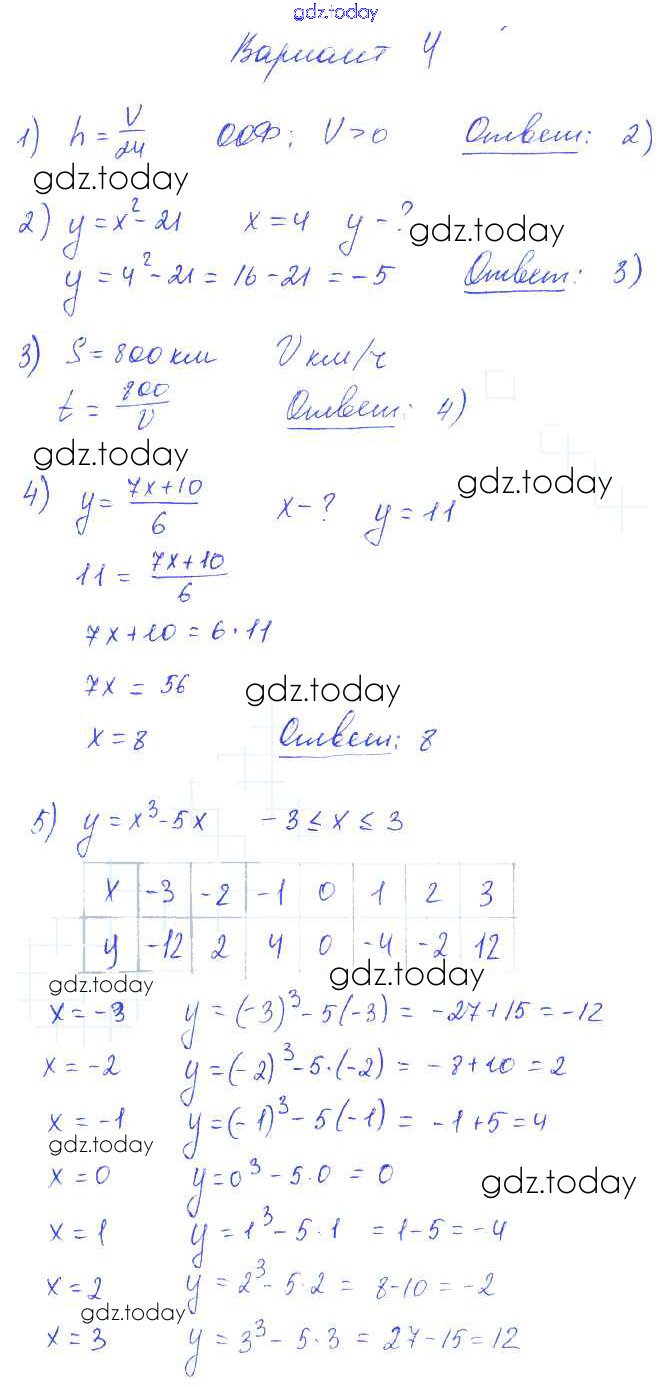 gdz.today
Вариант 4
1) h = V/24 ООФ: V > 0 Ответ: 2)
gdz.today
2) y = x² - 21 x = 4 y - ?
gdz.today
y = 4² - 21 = 16 - 21 = -5 Ответ: 3)
3) S = 800 км V км/ч
t = 800/V Ответ: 4)
gdz.today
4) y = (7x+10)/6 x - ? y = 11
gdz.today
11 = (7x+10)/6
7x + 10 = 6 · 11
7x = 56
gdz.today
x = 8 Ответ: 8
5) y = x³ - 5x -3 ≤ x ≤ 3
x -3 -2 -1 0 1 2 3
y -12 2 4 0 -4 -2 12
gdz.today gdz.today
x = -3 y = (-3)³ - 5(-3) = -27 + 15 = -12
x = -2 y = (-2)³ - 5·(-2) = -8 + 10 = 2
x = -1 y = (-1)³ - 5(-1) = -1 + 5 = 4
gdz.today
x = 0 y = 0³ - 5·0 = 0
gdz.today
x = 1 y = 1³ - 5·1 = 1 - 5 = -4
x = 2 y = 2³ - 5·2 = 8 - 10 = -2
gdz.today
x = 3 y = 3³ - 5·3 = 27 - 15 = 12